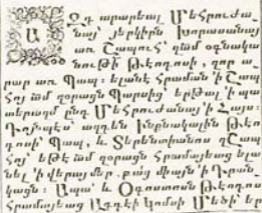 Օդ արարեալ Մեհրուժա
նայ՝ յերկրին Խորասանայ
առ Շապուհ՝ զամ օգնակա
նութի Թէոդոսի, զոր ա
րար առ Պապ։ ելանէ հրաման ՚ի Շապ
հոյ ամ զօրացն Պարսից՝ երթալ ՚ի պա
տերազմ ընդ Մեհրուժանայ ՚ի Հայս։
Դոյնպէս՝ ազդեն Ինքնակալին Թէո
դոսի՝ Պապ, և Տերենտիանոս զՇապ
հոյ՝ եթէ ամ զօրացն հրամայեաց ելա
նել ՚ի վերայ մեր, բայց միայն ՚ի Դրան
կացնց։ Ապա՝ և Օգոստոսն Թէոդոս
հրամայեաց Ադդէի Կոմսի Մեծի՝ եր